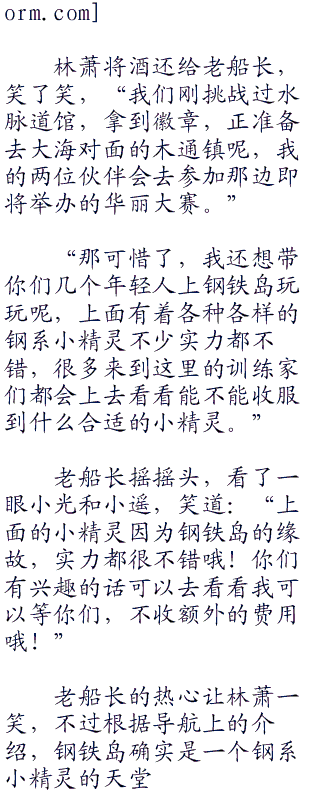 orm.com]
林萧将酒还给老船长，
笑了笑，“我们刚挑战过水
脉道馆，拿到徽章，正准备
去大海对面的木通镇呢，我
的两位伙伴会去参加那边即
将举办的华丽大赛。”
“那可惜了，我还想带
你们几个年轻人上钢铁岛玩
玩呢，上面有着各种各样的
钢系小精灵不少实力都不
错，很多来到这里的训练家
们都会上去看看能不能收服
到什么合适的小精灵。”
老船长摇摇头，看了一
眼小光和小遥，笑道：“上
面的小精灵因为钢铁岛的缘
故，实力都很不错哦！你们
有兴趣的话可以去看看我可
以等你们，不收额外的费用
哦！”
老船长的热心让林萧一
笑，不过根据导航上的介
绍，钢铁岛确实是一个钢系
小精灵的天堂